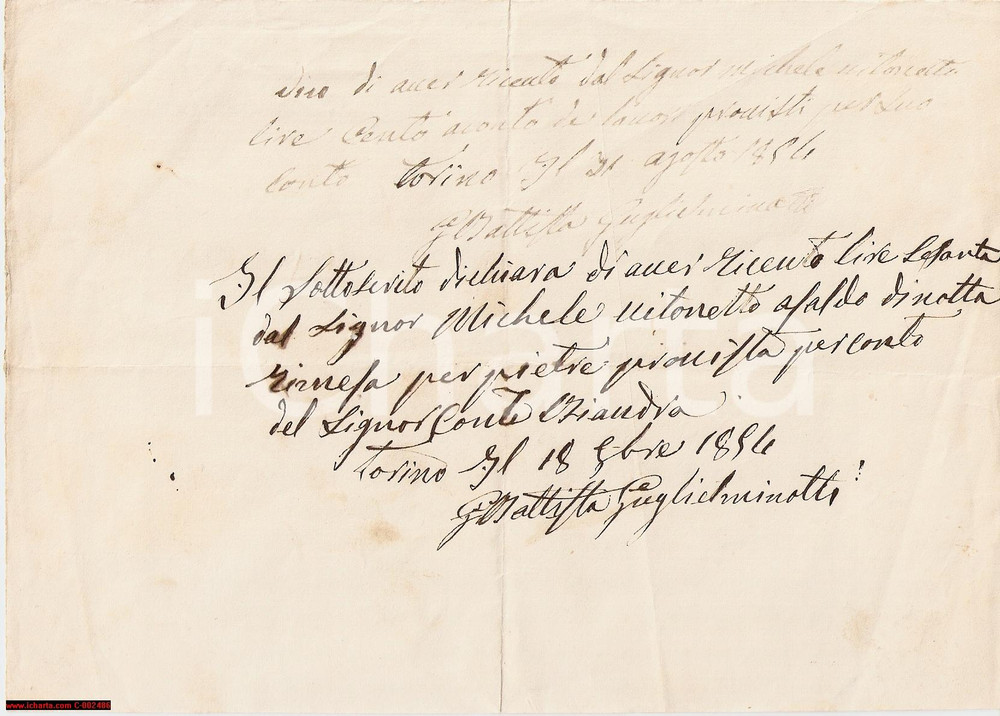 Dico di aver riceuto dal Signor Michele vitonetto
lire Cento aconto de lavori provisti per suo
Conto Torino Il 31 agosto 1854
G Battista Guglielminotti
Il Sottoscrito dichiara di aver riceuto lire Sesanta
dal Signor Michele vitonetto asaldo dinotta
rimesa per pietre provista perconto
del Signor Conte Biandra
Torino Il 18 9bre 1854
G Battista Guglielminotti
iCharta
www.icharta.com C-002486